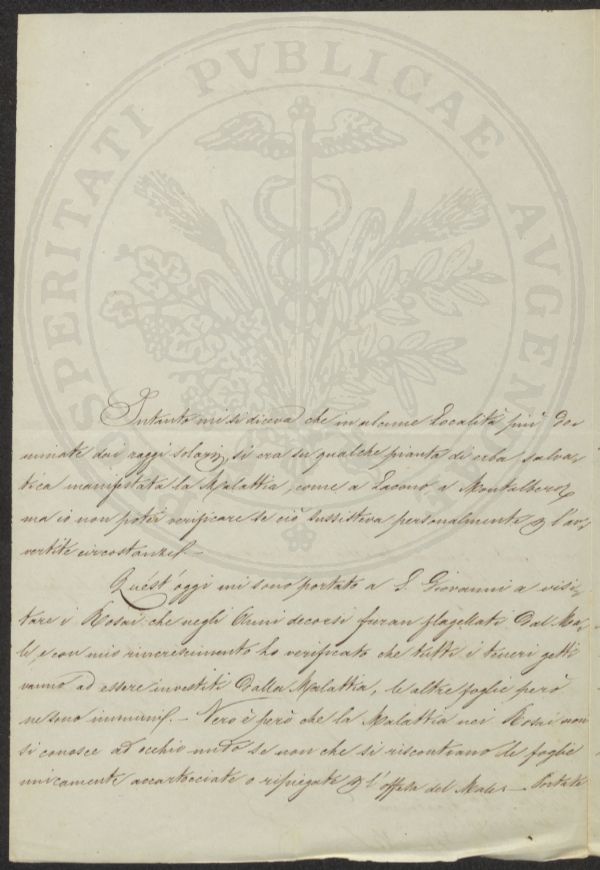 PROSPERITATI PVBLICAE AVGENDAE
Intanto mi si diceva che in alcune Località più do=
minate dai raggi solari, si era su qualche pianta di erba salva=
tica manifestata la Malattia, come a Lacono, a Montalbero,
ma io non potei verificare se ciò sussisteva personalmente p l'av=
vertite circostanze.—
Quest'oggi mi sono portato a S. Giovanni a visi=
tare i Rosai che negli Anni decorsi furan flagellati dal Ma=
le, e con mio rincrescimento ho verificato che tutti i teneri getti
vanno ad essere investiti dalla Malattia, le altre foglie però
ne sono immuni.— Vero è però che la Malattia nei Rosai non
si conosce ad occhio nudo se non che si riscontrano le foglie
unicamente accartocciate o ripiegate p l'offesa del Male.—